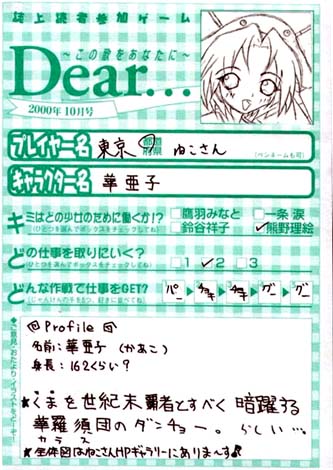 誌上読者参加ゲーム
～この歌をあなたに～
Dear…
2000年10月号
プレイヤー名 東京 都道府県 ねこさん
(ペンネームも可)
キャラクター名 華亜子
キミはどの少女のために働くか!?
(ひとつを選んでボックスをチェックしてね)
□鷹羽みなと □一条 涙
□鈴谷祥子 ☑熊野理絵
どの仕事を取りにいく?
(ひとつを選んでボックスをチェックしてね)
□1 ☑2 □3
どんな作戦で仕事をGET?
(じゃんけんの手を5つ、好きに並べてね)
パー チョキ チョキ グー グー
◎Profile◎
名前:華亜子 (かあこ)
身長:162くらい?
★くまを世紀末覇者とすべく暗躍する
華羅須団のダンチョー。らしい…。
カラス
★全体図はねこさんHPギャラリーにありま〜す♪